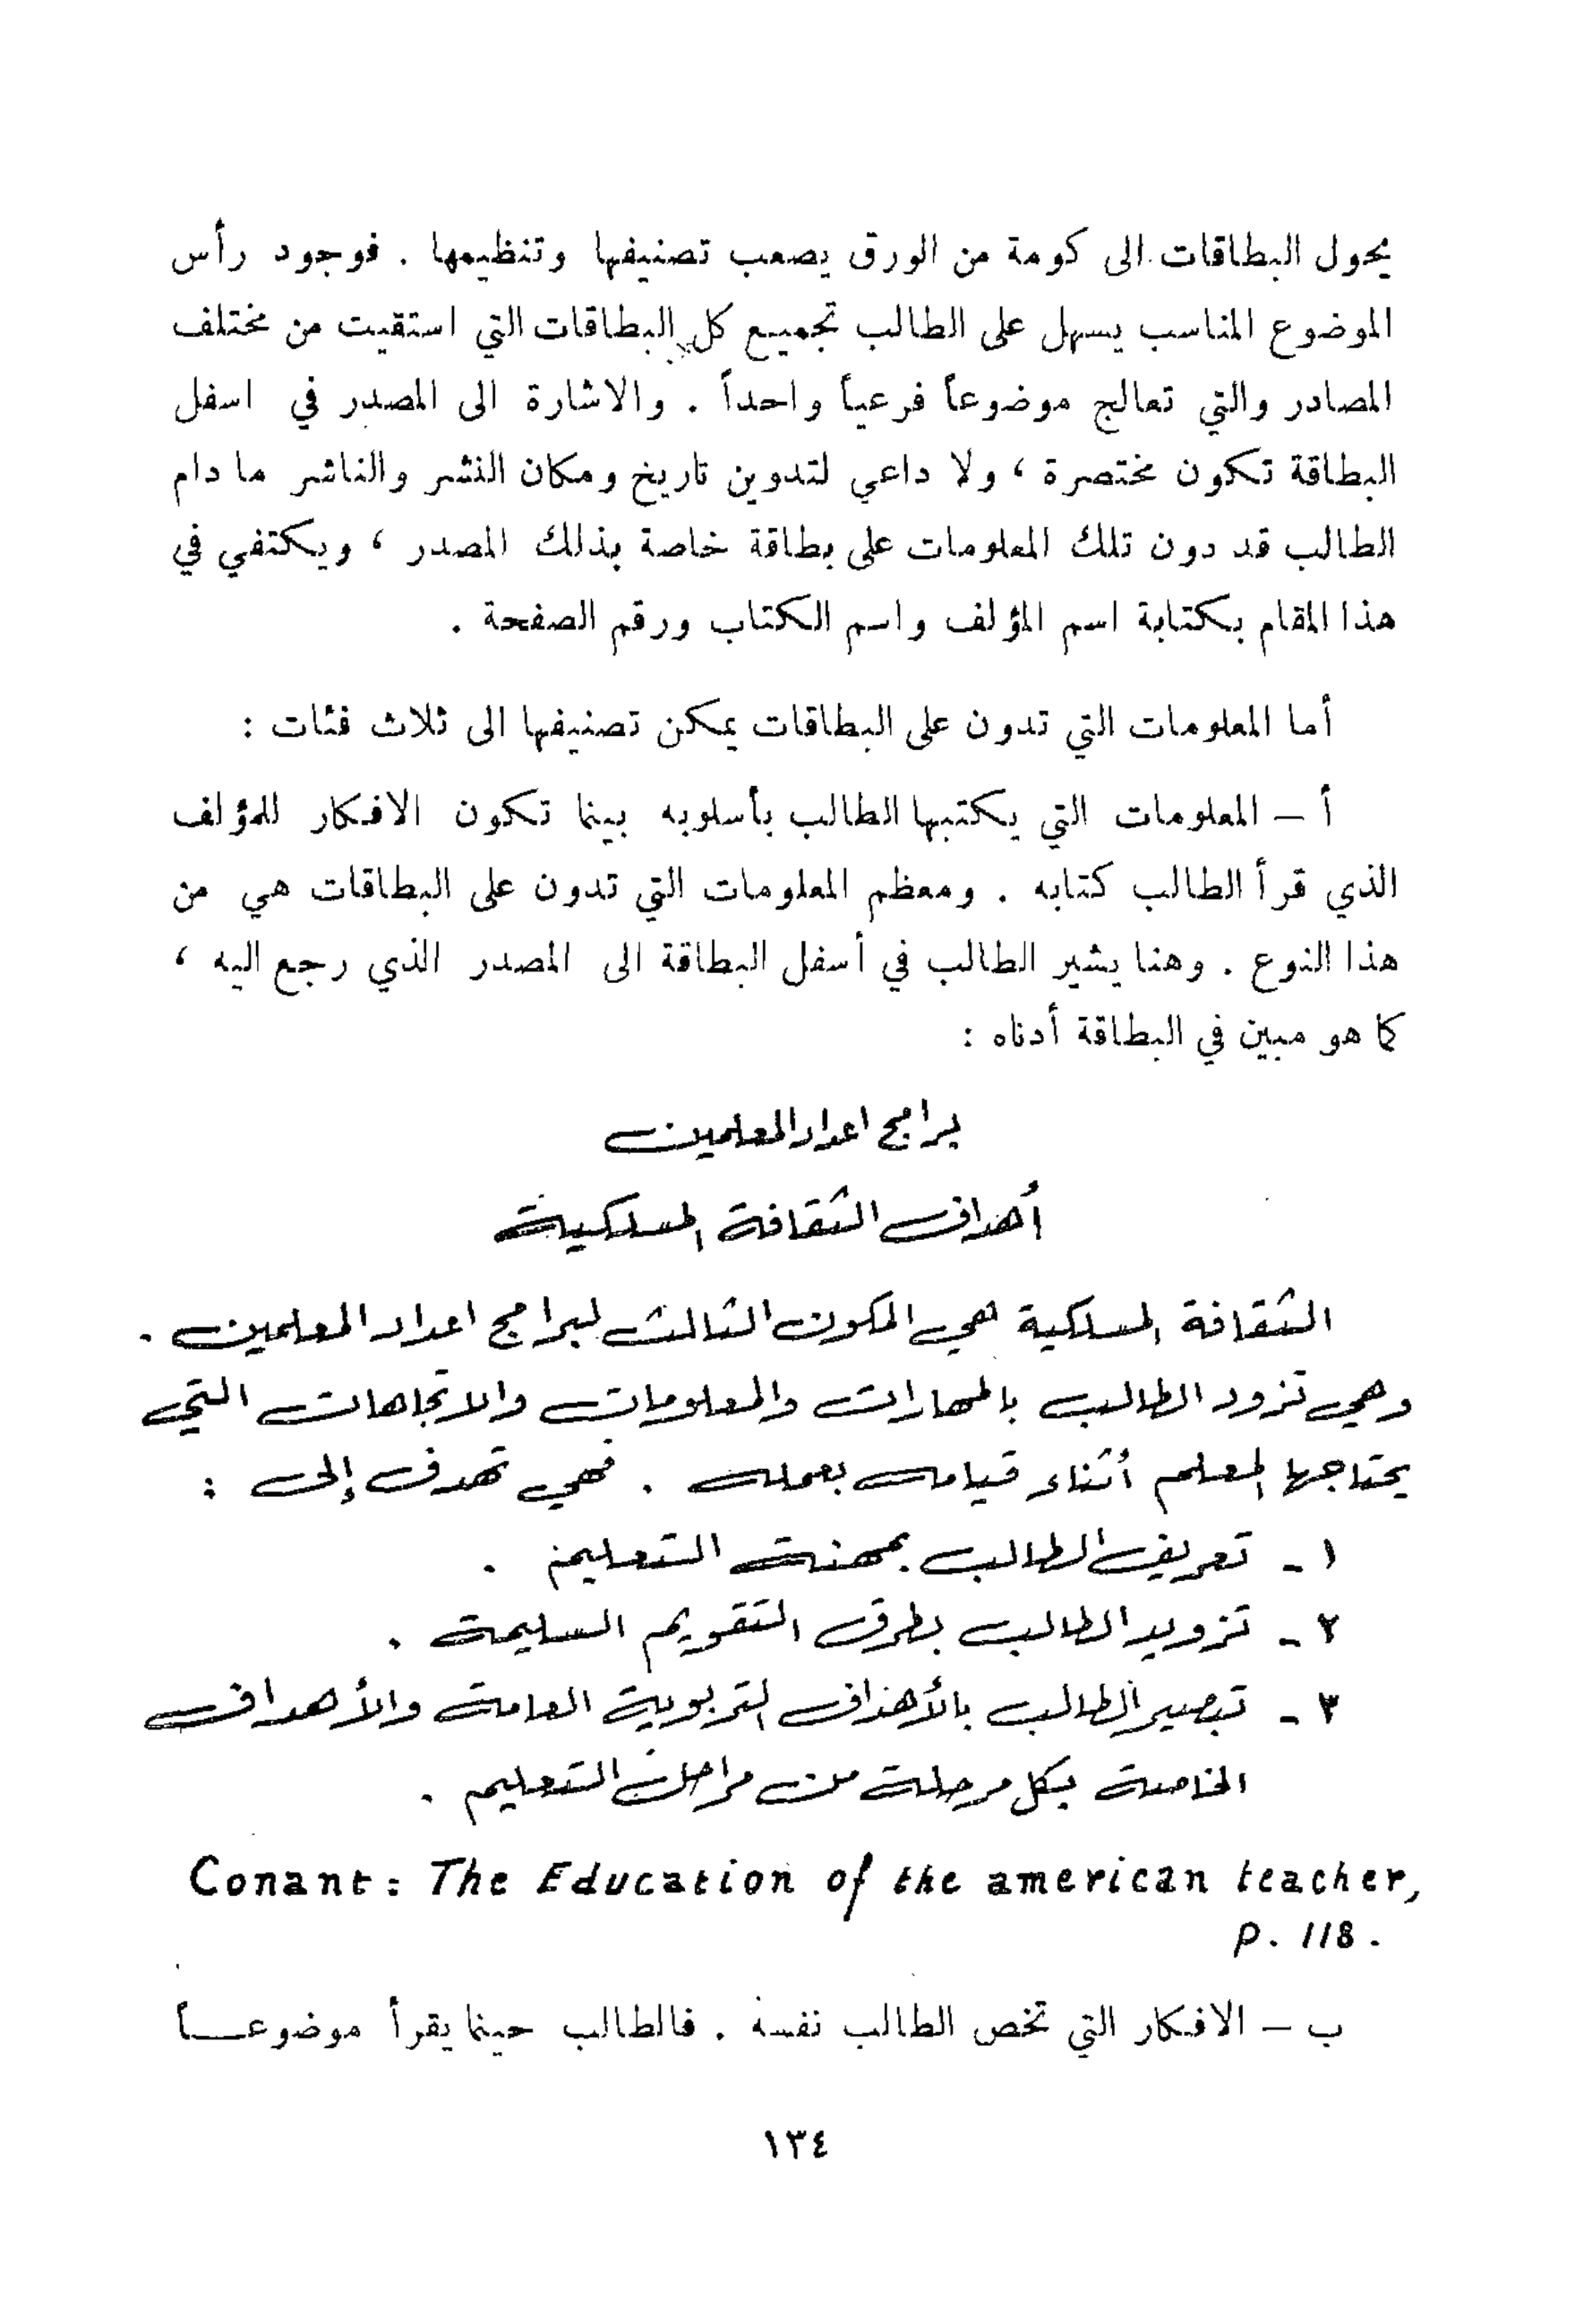 يحول البطاقات الى كومة من الورق يصعب تصنيفها وتنظيمها . فوجود رأس
الموضوع المناسب يسهل على الطالب تجميع كل البطاقات التي استقيت من مختلف
المصادر والتي تعالج موضوعاً فرعياً واحداً . والاشارة الى المصدر في اسفل
البطاقة تكون مختصرة ، ولا داعي لتدوين تاريخ ومكان النشر والناشر ما دام
الطالب قد دون تلك المعلومات على بطاقة خاصة بذلك المصدر ، ويكتفي في
هذا المقام بكتابة اسم المؤلف واسم الكتاب ورقم الصفحة .
أما المعلومات التي تدون على البطاقات يمكن تصنيفها الى ثلاث فئات :
أ – المعلومات التي يكتبها الطالب بأسلوبه بينما تكون الافكار للمؤلف
الذي قرأ الطالب كتابه . ومعظم المعلومات التي تدون على البطاقات هي من
هذا النوع . وهنا يشير الطالب في أسفل البطاقة الى المصدر الذي رجع اليه ،
كما هو مبين في البطاقة أدناه :
برامج اعداد المعلمين
أهداف الثقافة المسلكية
الثقافة المسلكية هي المكون الثالث لبرامج اعداد المعلمين .
وهي تزود الطالب بالمهارات والمعلومات والاتجاهات التي
يحتاجها المعلم أثناء قيامه بعمله . فهي تهدف إلى :
١ - تعريف الطالب بمهنة التعليم .
٢ - تزويد الطالب بطرق التقويم السليمة .
٣ - تبصير الطالب بالأهداف التربوية العامة والأهداف
الخاصة بكل مرحلة من مراحل التعليم .
Conant: The Education of the american teacher,
p. 118.
ب – الافكار التي تخص الطالب نفسه . فالطالب حينما يقرأ موضوعـــاً
١٣٤